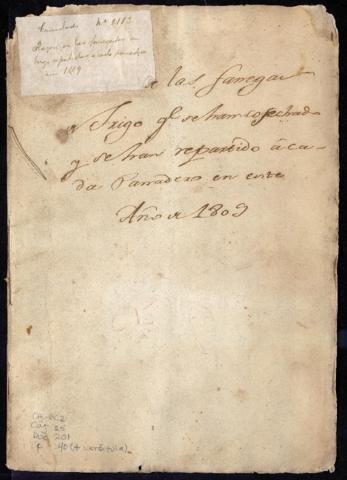 Nº 1113
Razon de las fanegas de
trigo repartidas a cada panadero
año 1809
de las fanegas
de Trigo qe. se han cosechado
y se han repartido à ca-
da Panadero en este
Año de 1809
CA-OC2
Caj 25
Doc 201
f. 40 (+ carátula)